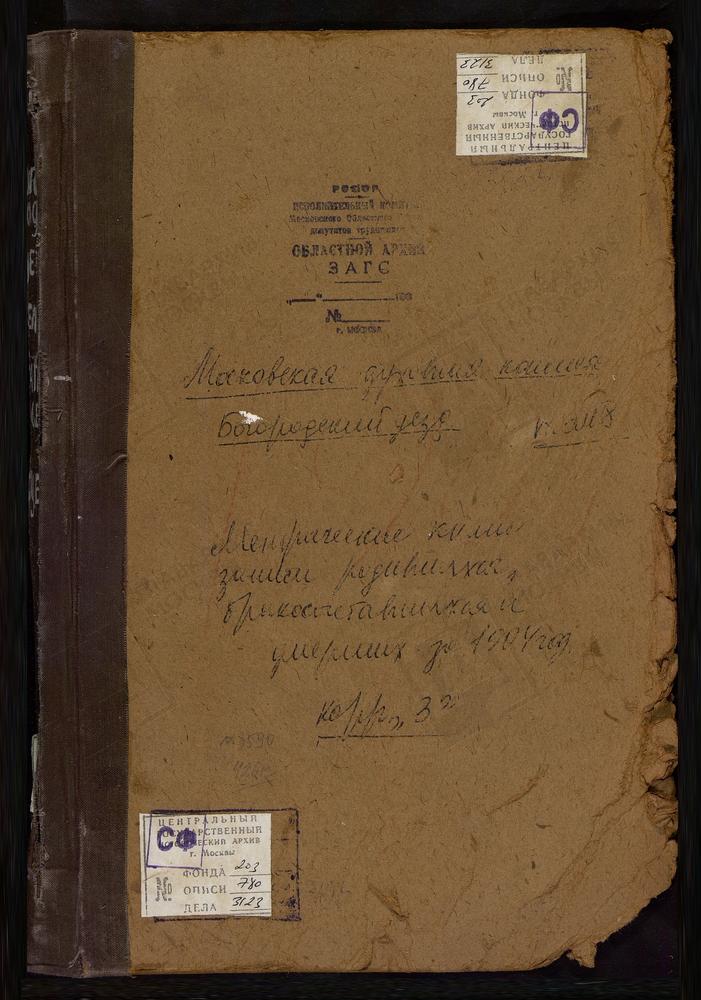 ЦЕНТРАЛЬНЫЙ
ГОСУДАРСТВЕННЫЙ
ИСТОРИЧЕСКИЙ АРХИВ
г. Москвы
СФ
№
ФОНДА 203
ОПИСИ 780
ДЕЛА 3123
РСФСР
ИСПОЛНИТЕЛЬНЫЙ
Московского Областного
депутатов трудящихся
ОБЛАСТНОЙ АРХИВ
ЗАГС
№
г. Москва
Московская духовная
Богородский уезд
книги
записи родившихся,
бракосочетавшихся и
умерших за 1904 год
ЦЕНТРАЛЬНЫЙ
ГОСУДАРСТВЕННЫЙ
ИСТОРИЧЕСКИЙ АРХИВ
г. Москвы
СФ
№
ФОНДА 203
ОПИСИ 780
ДЕЛА 3123